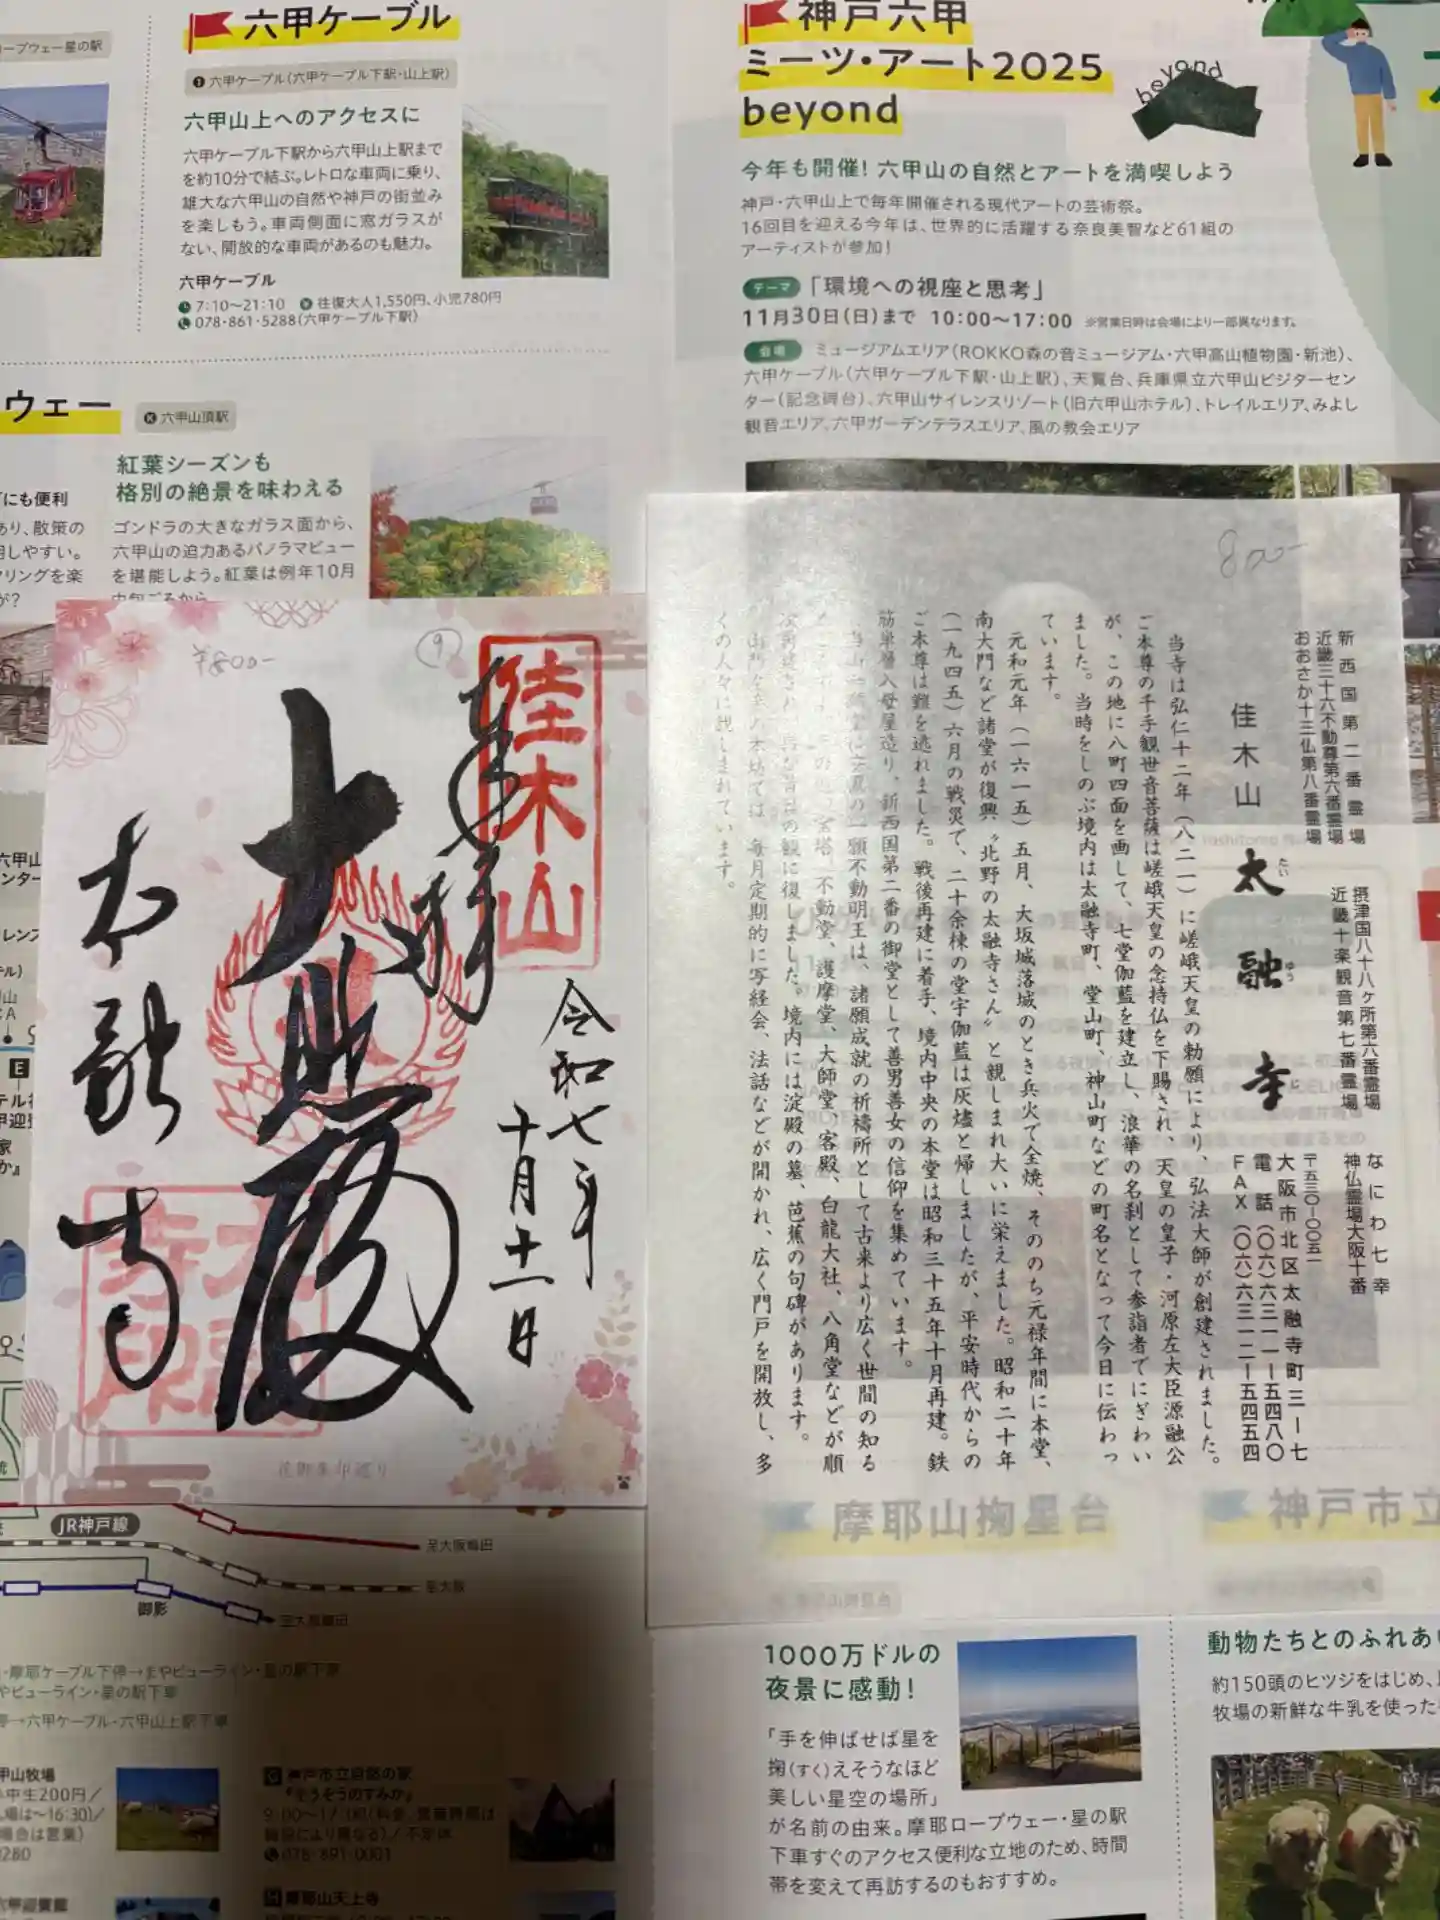 六甲ケーブル
六甲ケーブル(六甲ケーブル下駅・山上駅)
六甲山上へのアクセスに
六甲ケーブル下駅から六甲山上駅まで
を約10分で結ぶ。レトロな車両に乗り、
雄大な六甲山の自然や神戸の街並み
を楽しもう。車両側面に窓ガラスが
ない、開放的な車両があるのも魅力。
六甲ケーブル
7:10〜21:10 往復大人1,550円、小児780円
078-861-5288(六甲ケーブル下駅)
ープウェー星の駅
ウェー
六甲山頂駅
紅葉シーズンも
格別の絶景を味わえる
ゴンドラの大きなガラス面から、
六甲山の迫力あるパノラマビュー
を堪能しよう。紅葉は例年10月
にも便利
あり、散策の
用しやすい。
神戸六甲
ミーツ・アート2025
beyond
beyond
今年も開催! 六甲山の自然とアートを満喫しよう
神戸・六甲山上で毎年開催される現代アートの芸術祭。
16回目を迎える今年は、世界的に活躍する奈良美智など61組の
アーティストが参加!
テーマ 「環境への視座と思考」
11月30日(日)まで 10:00〜17:00 ※営業日時は会場により一部異なります。
会場 ミュージアムエリア(ROKKO森の音ミュージアム・六甲高山植物園・新池)、
六甲ケーブル(六甲ケーブル下駅・山上駅)、天覧台、兵庫県立六甲山ビジターセン
ター(記念碑台)、六甲山サイレンスリゾート(旧六甲山ホテル)、トレイルエリア、みよし
観音エリア、六甲ガーデンテラスエリア、風の教会エリア
¥800-
9
佳木山
奉拝
令和七年
十月十一日
大悲殿
太融寺
花御朱印巡り
800-
新西国第二番霊場
近畿三十六不動尊第六番霊場
おおさか十三仏第八番霊場
摂津国八十八ヶ所第六番霊場
近畿十楽観音第七番霊場
なにわ七幸
神仏霊場大阪十番
佳木山 太融寺
たいゆうじ
〒五三〇-〇〇五一
大阪市北区太融寺町三-七
電話(〇六)六三一一-五四八〇
FAX(〇六)六三一二-五四五四
当寺は弘仁十二年(八二一)に嵯峨天皇の勅願により、弘法大師が創建されました。
ご本尊の千手観世音菩薩は嵯峨天皇の念持仏を下賜され、天皇の皇子・河原左大臣源融公
が、この地に八町四面を画して、七堂伽藍を建立し、浪華の名刹として参詣者でにぎわい
ました。当時をしのぶ境内は太融寺町、堂山町、神山町などの町名となって今日に伝わっ
ています。
元和元年(一六一五)五月、大坂城落城のとき兵火で全焼、そののち元禄年間に本堂、
南大門など諸堂が復興、〝北野の太融寺さん〟と親しまれ大いに栄えました。昭和二十年
(一九四五)六月の戦災で、二十余棟の堂宇伽藍は灰燼と帰しましたが、平安時代からの
ご本尊は難を逃れました。戦後再建に着手、境内中央の本堂は昭和三十五年十月再建。鉄
筋単層入母屋造り、新西国第二番の御堂として善男善女の信仰を集めています。
願不動明王は、諸願成就の祈禱所として古来より広く世間の知る
宝塔、不動堂、護摩堂、大師堂、客殿、白龍大社、八角堂などが順
の観に復しました。境内には淀殿の墓、芭蕉の句碑があります。
本坊では、毎月定期的に写経会、法話などが開かれ、広く門戸を開放し、多
くの人々に親しまれています。
JR神戸線
至大阪梅田
至大阪
御影
至大阪梅田
摩耶山掬星台
神戸市立
・摩耶ケーブル下停→まやビューライン・星の駅下車
やビューライン・星の駅下車
→六甲ケーブル・六甲山上駅下車
甲山牧場
中生200円/
場は〜16:30)/
場合は営業)
0280
G 神戸市立自然の家
078-891-0001
H 摩耶山天上寺
1000万ドルの
夜景に感動!
「手を伸ばせば星を
掬(すく)えそうなほど
美しい星空の場所」
が名前の由来。摩耶ロープウェー・星の駅
下車すぐのアクセス便利な立地のため、時間
帯を変えて再訪するのもおすすめ。
動物たちとのふれあ
約150頭のヒツジをはじめ、
牧場の新鮮な牛乳を使った